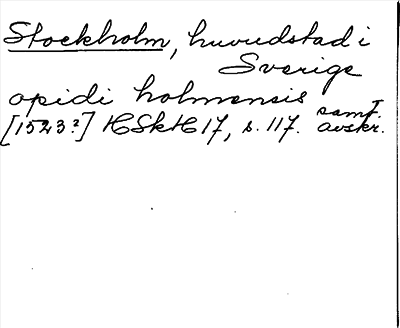 Stockholm, huvudstad i
Sverige
opidi holmensis
[1523?] HSkH 17, s. 117. samt. avskr.